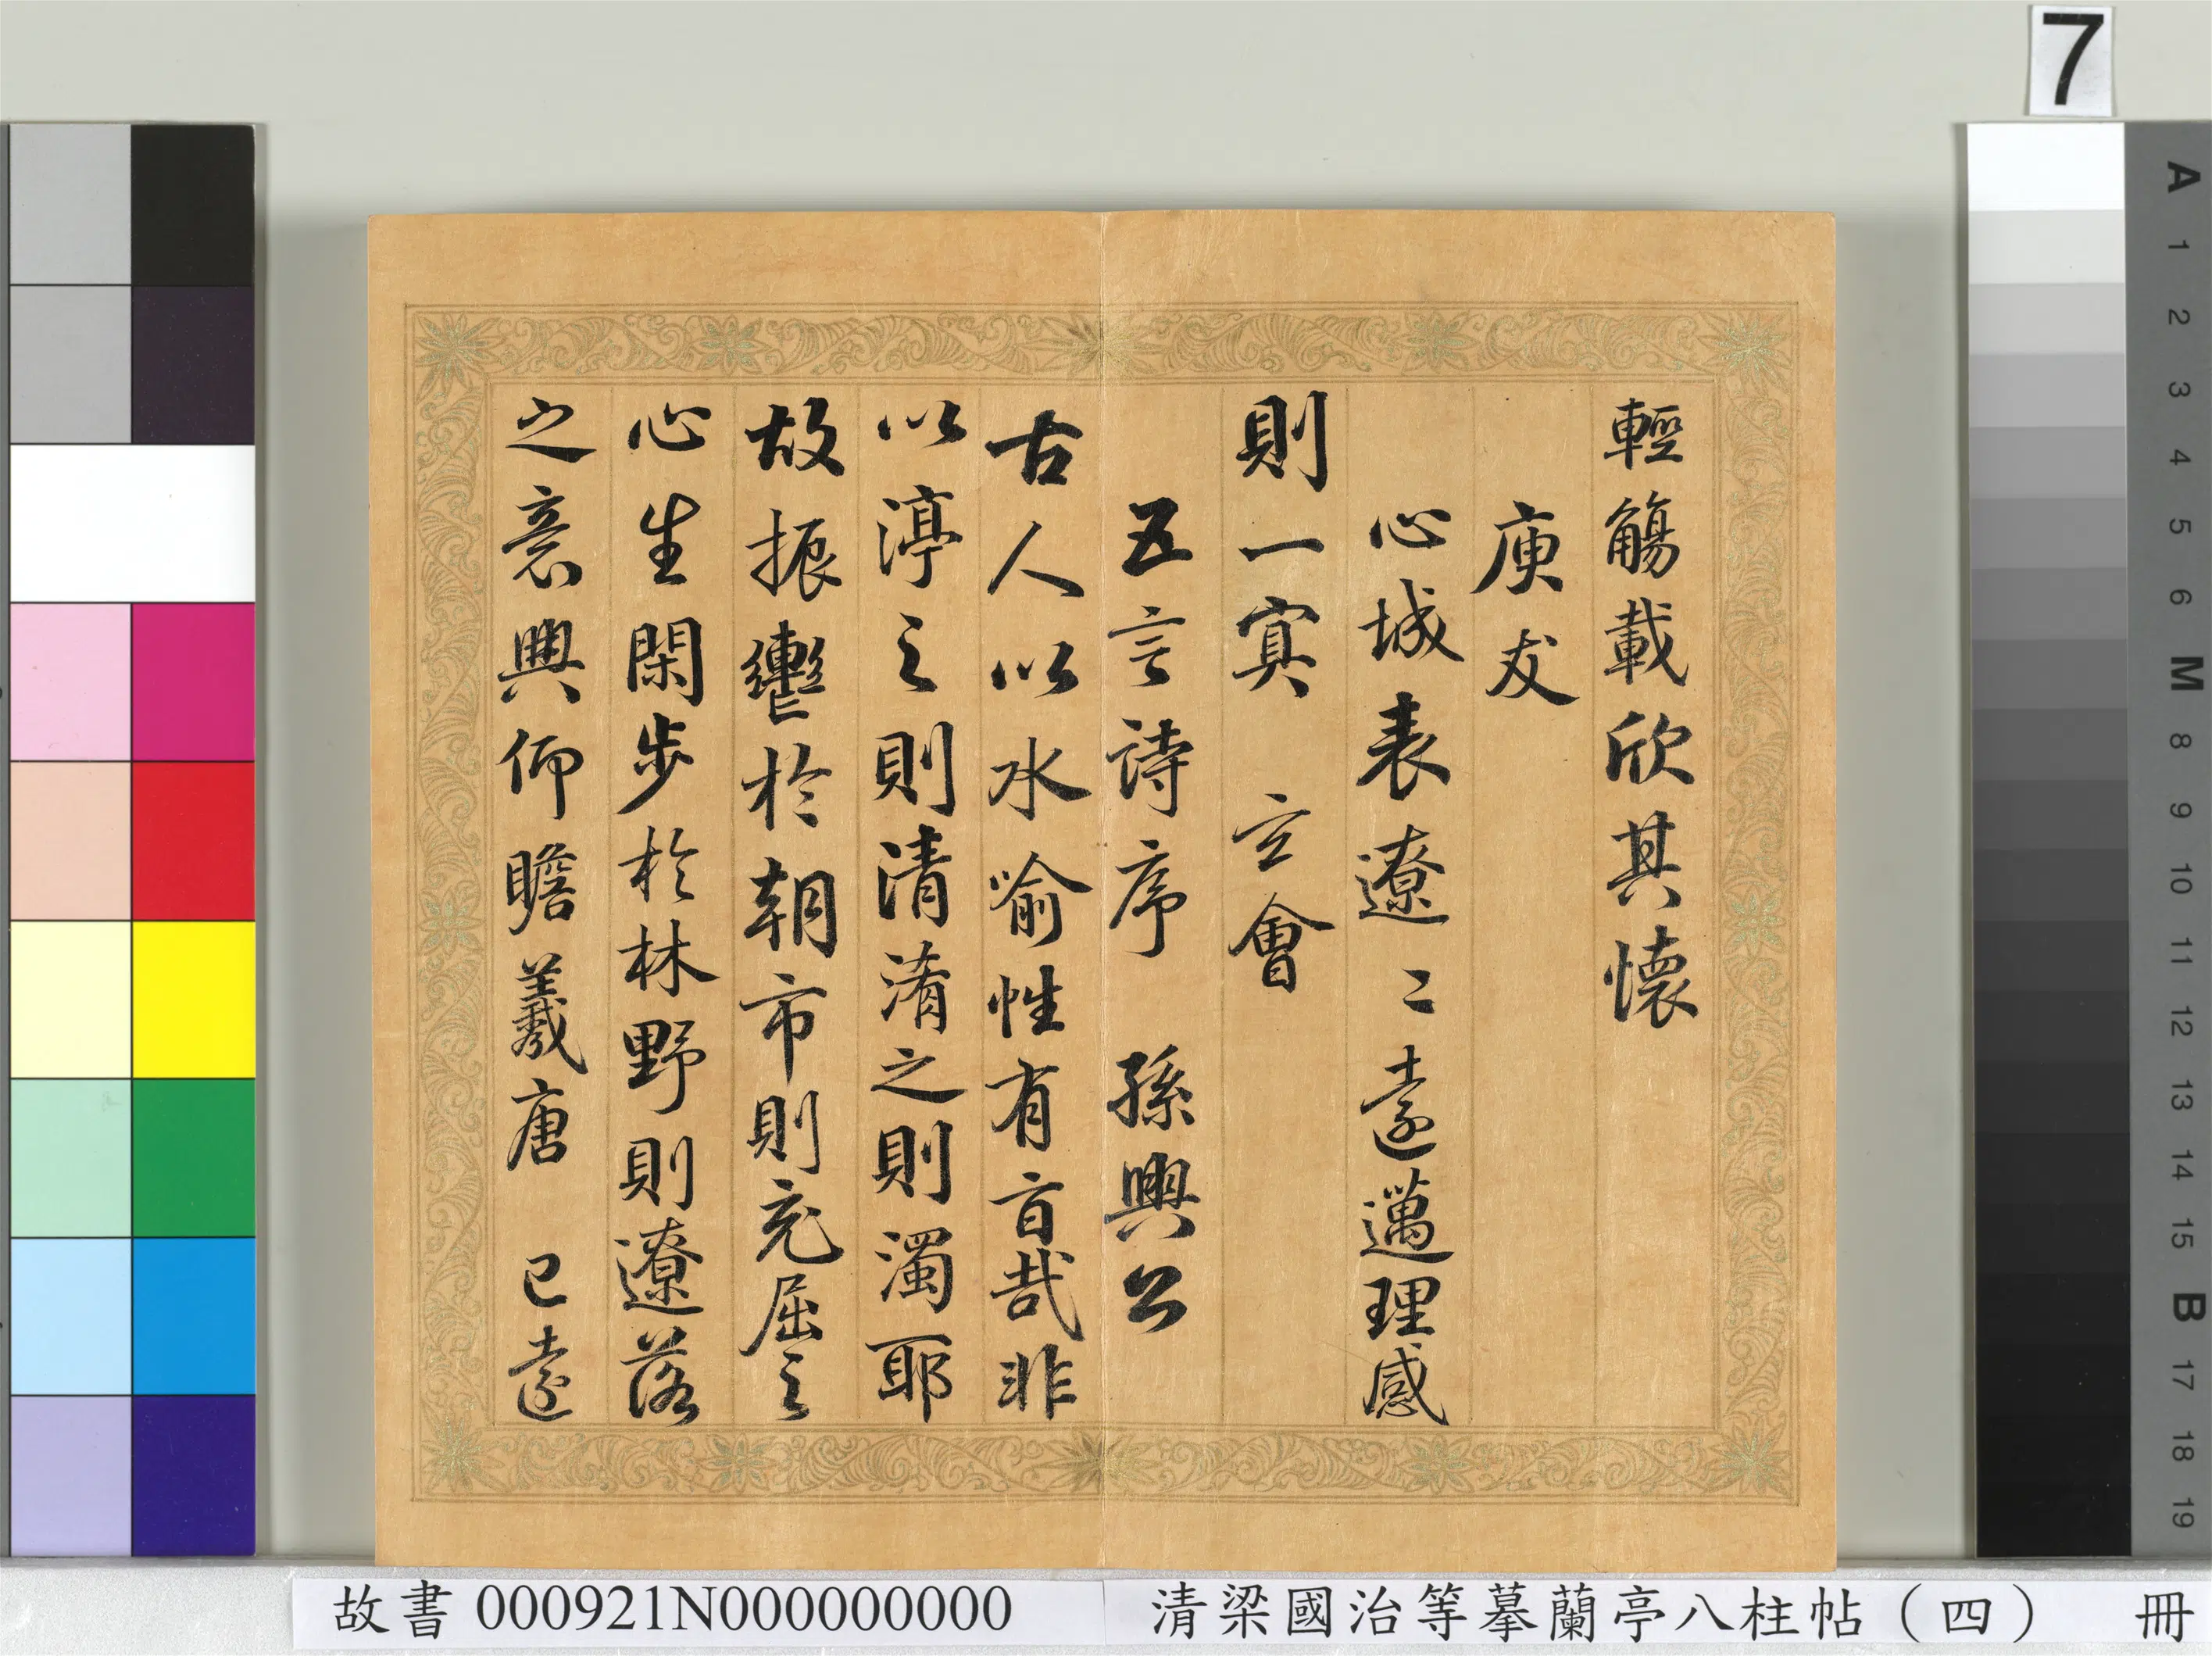 7
輕觴載欣其懷
庾友
心城表遼〻遠邁理感
則一寘 玄會
五言詩序 孫興公
古人以水喻性有旨哉非
以渟之則清淆之則濁耶
故振轡於朝市則充屈之
心生閑步於林野則遼落
之意興仰瞻羲唐 已遠
故書 000921N000000000 清梁國治等摹蘭亭八柱帖（四） 冊
A
1
2
3
4
5
6
M
8
9
10
11
12
13
14
15
B
17
18
19